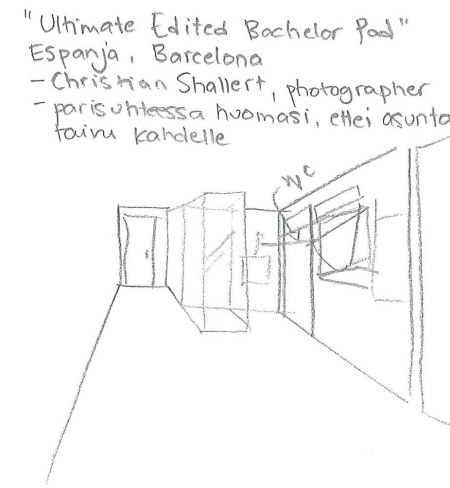 "Ultimate Edited Bachelor Pad"
Espanja, Barcelona
- Christian Shallert, photographer
- parisuhteessa huomasi, ettei asunto
taivu kahdelle
WC